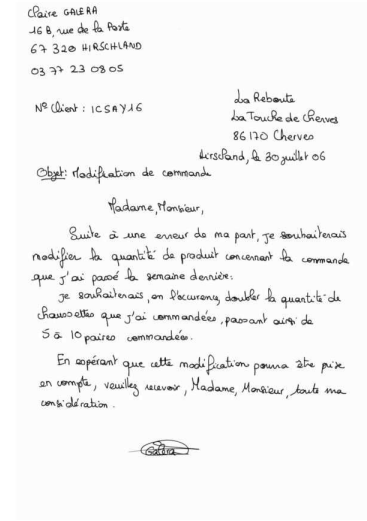 Claire GALERA
16 B, rue de la Poste
67 320 HIRSCHLAND
03 77 23 08 05
N° Client : ICSAY16
La Reboute
La Touche de Cherves
86170 Cherves
Hirschland, le 30 juillet 06
Objet: Modification de commande
Madame, Monsieur,
Suite à une erreur de ma part, je souhaiterais
modifier la quantité de produit concernant la commande
que j'ai passé la semaine dernière.
je souhaiterais, en l'occurency, doubler la quantité de
chaussettes que j'ai commandées, passant ainsi de
5 à 10 paires commandées.
En espérant que cette modification pourra être prise
en compte, veuillez recevoir, Madame, Monsieur, toute ma
considération.
Galera